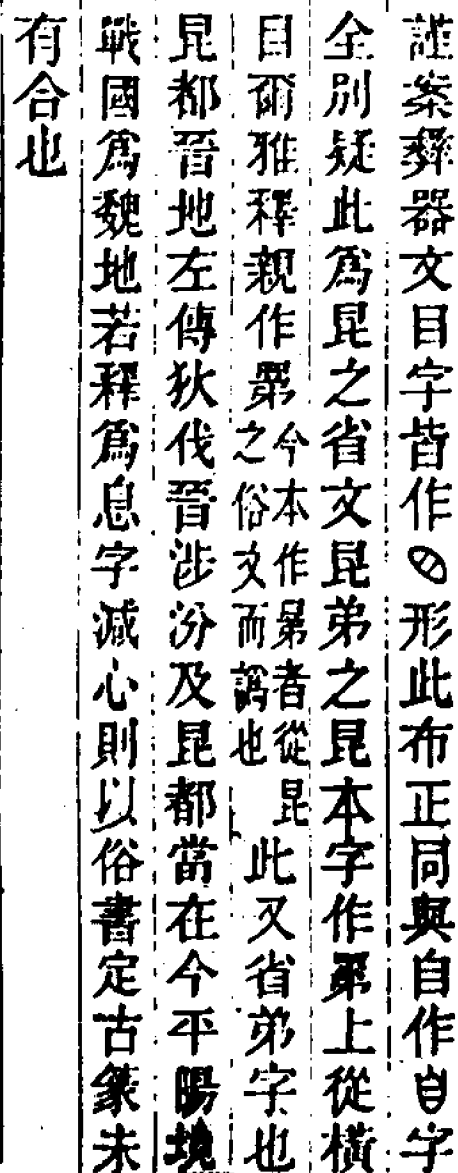 謹案彝器文目字皆作形此布正同與自作字
全別疑此爲昆之省文昆弟之昆本字作𥊽上從橫
目爾雅釋親作𥊽今本作晜者從昆之俗文而譌也此又省弟字也
昆都晉地左傳狄伐晉涉汾及昆都當在今平陽境
戰國爲魏地若釋爲息字減心則以俗書定古篆未
有合也